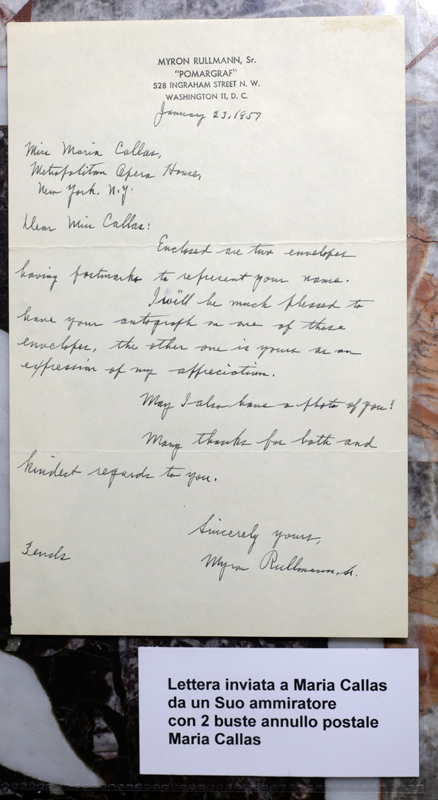 MYRON RULLMANN, Sr.
"POMARGRAF"
528 INGRAHAM STREET N. W.
WASHINGTON 11, D. C.
January 23, 1957
Miss Maria Callas,
Metropolitan Opera House,
New York. N.Y.
Dear Miss Callas:
Enclosed are two envelopes
having postmarks to represent your name.
I will be much plessed to
have your autograph on one of these
envelopes, the other one is yours as an
expression of my affreciation.
May I also have a photo of you?
Many thanks for both and
kindest regards to you.
Sincerely yours,
Myron Rullmann, Sr.
Lettera inviata a Maria Callas
da un Suo ammiratore
con 2 buste annullo postale
Maria Callas